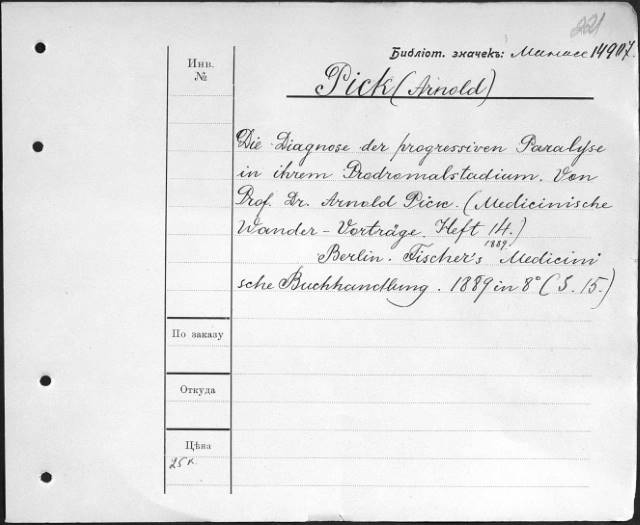 221
Библiот. значекъ: Манасс 14907.
Инв.
№
Pick (Arnold)
Die Diagnose der progressiven Paralyse
in ihrem Prodromalstadium. Von
Prof. Dr. Arnold Pick. (Medicinische
Wander-Vorträge. Heft 14.)
1889.
Berlin. Fischer's Medicini
sche Buchhandlung. 1889 in 8° (S. 15.)
По заказу
Откуда
Цѣна
25 к.